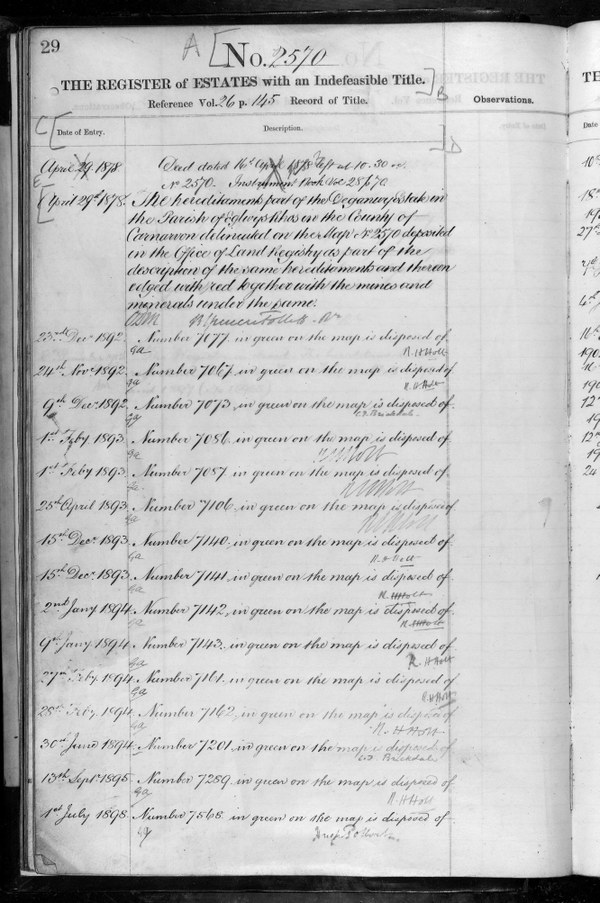 29
A [ No. 2570
THE REGISTER of ESTATES with an Indefeasible Title. ] B
Reference Vol. 26 p. 145 Record of Title.
Observations.
C [ Date of Entry. Description. ] D
April 29 1878 Deed dated 16th April 1878 left at 10.30
No 2570. Instrument Book Vol 28 p 70
E [ April 29th 1878. The hereditaments part of the Deganwy Estate in
the Parish of Eglwys Rhos in the County of
Carnarvon delineated on the Map No 2570 deposited
in the Office of Land Registry as part of the
description of the same hereditaments and thereon
edged with red together with the mines and
minerals under the same.
23rd Decr 1892. Number 7077, in green on the map is disposed of.
R. H Holt
24th Novr 1892. Number 7067, in green on the map is disposed of
R. H Holt
9th Decr 1892. Number 7073, in green on the map is disposed of.
1st Feby 1893. Number 7086, in green on the map is disposed of.
1st Feby 1893. Number 7087, in green on the map is disposed of.
25th April 1893. Number 7106, in green on the map is disposed of
15th Decr 1893. Number 7140, in green on the map is disposed of.
R. H Holt
15th Decr 1893. Number 7141, in green on the map is disposed of.
R. H Holt
2nd Jany 1894. Number 7142, in green on the map is disposed of.
R. H Holt
9th Jany 1894. Number 7143, in green on the map is disposed of.
R. H Holt
27th Feby 1894. Number 7161, in green on the map is disposed of.
R. H Holt
28th Feby 1894. Number 7162, in green on the map is disposed of
R. H Holt
30th June 1894. Number 7201, in green on the map is disposed of
13th Septr 1895. Number 7289, in green on the map is disposed of
R. H Holt
1st July 1898. Number 7568 in green on the map is disposed of